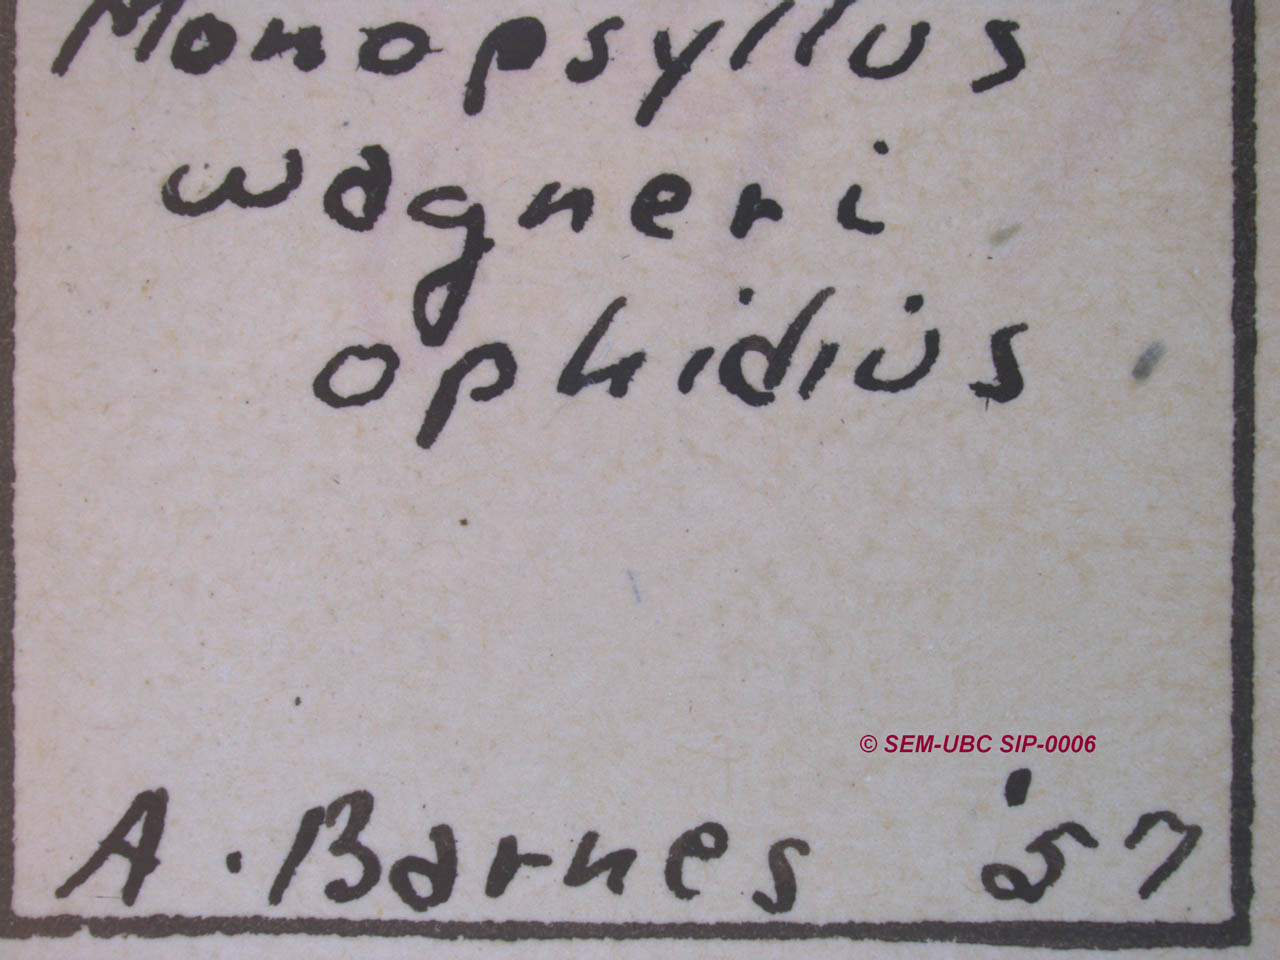 Monopsyllus
wagneri
ophidius
© SEM-UBC SIP-0006
A. Barnes '57